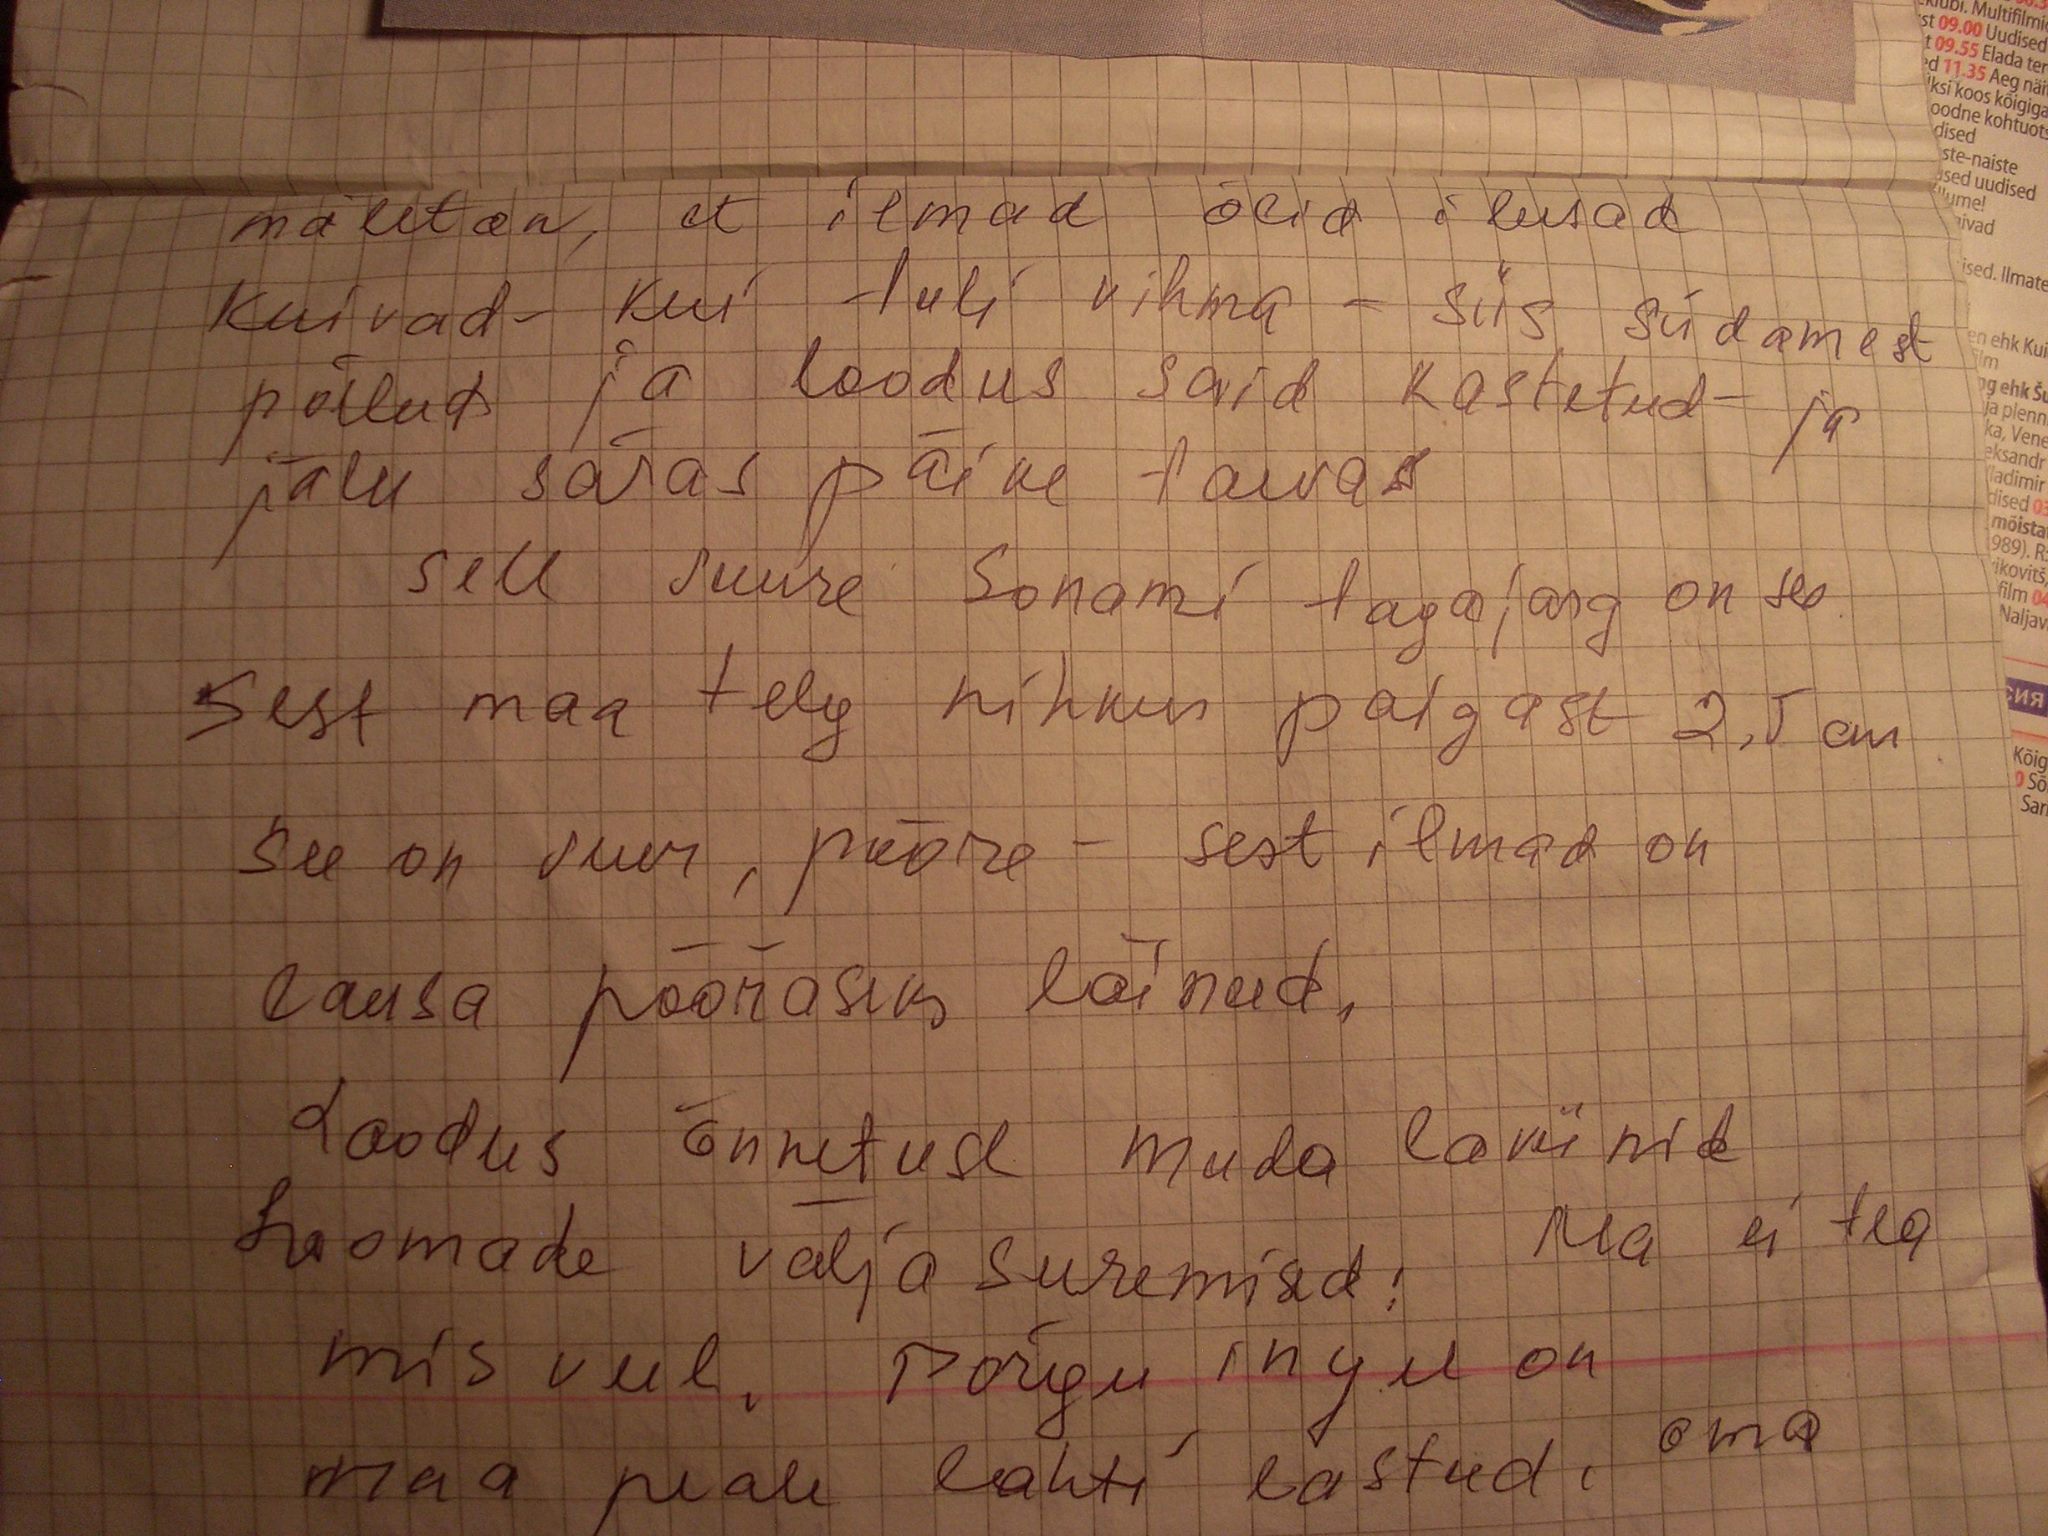 mäletan, et ilmad olid ilusad
kuivad - kui tuli vihma - siis südamest
põllud ja loodus said kastetud - ja
jälle säras päike taevas
selle suure Sonami tagajärg on see
Sest maa telg nihkus paigast 2,5 cm
See on suur, pööre - sest ilmad on
lausa pööraseks läinud,
Loodus õnnetused muda laviinid
Loomade välja suremised! Ma ei tea
mis veel. Põrgu ingel on
maa peale lahti lastud. oma
eklubi. Multifilmid
09.00 Uudised
09.55 Elada
11.35 Aeg
koos kõigiga
oodne kohtuots
dised
ste-naiste
used uudised
ised. Ilmate
en ehk Kui
film
ehk
ja
Vene
eksandr
ladimir
dised 03
mõista
989).
ikovitš,
film 04
Naljav
СИЯ
Kõig